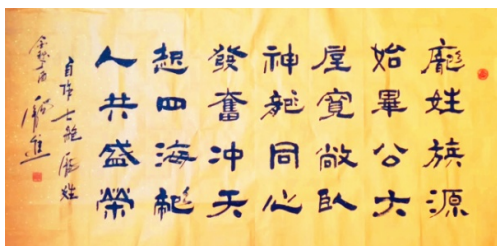 龐姓族源
始畢公大
屋寬敞臥
神龍同心
發奮冲天
起四海龐
人共盛榮
自作七絕龐姓
龐進